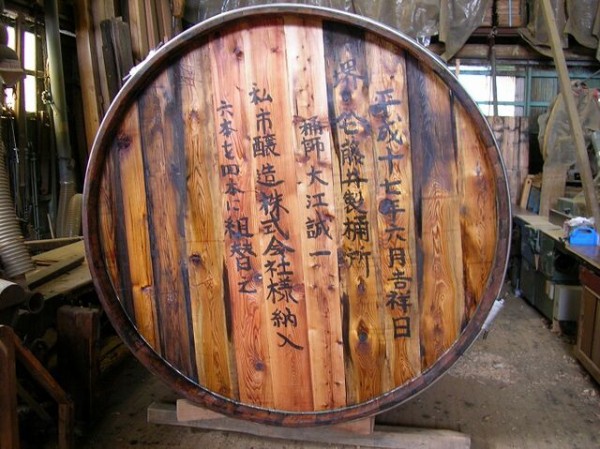 平成十七年六月吉祥日
堺 藤井製桶所
桶師 大江誠一
私市醸造株式会社様納入
六本を四本に組替之